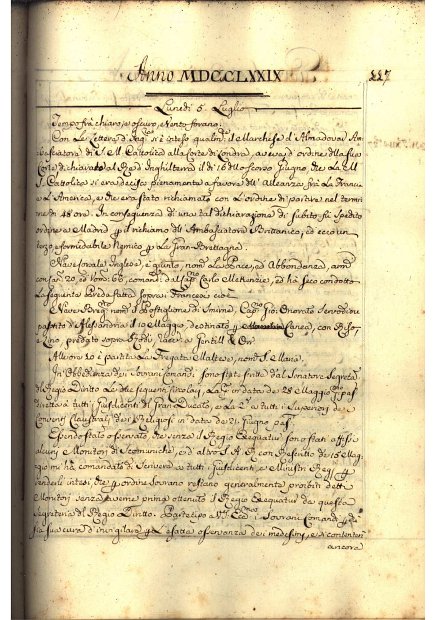 Anno MDCCLXXIX
117
Lunedì 5 Luglio
Tempo frà chiaro, e oscuro, e Vento forano.
Con Le Lettere d' si è inteso qualm. il Marchese d'Almadovar Am
basciatore di S. M. Cattolica alla Corte di Londra, aveva d'ordine della sua
Corte dichiarato al Re d'Inghilterra il dì 16 dello scorso Giugno, che La M.
S. Cattolica si era decisa pienamente a favore dell'Alleanza frà La Francia
e L'America, e che era stato richiamato con L'ordine di partire nel termi
ne di 48 ore. In conseguenza di una tal dichiarazione fu subito spedito
ordine a Madrid p il richiamo dell'Ambasciatore Britannico, ed ecco un
terzo, e formidabile Nemico p La Gran Brettagna.
Nave Corsale Inglese, è giunto, nom. La Pace, ed Abbondanza, arm.
con Can. 20, ed Uom. 66, comand. dal Cap. Carlo Mekenzie, ed ha seco condotto
La seguente Preda fatta sopra i Francesi cioè
Nave nom. Postiglione di Smirne, Cap. Gio: Onorato
partito d'Alessandria il 10 Maggio, destinato p Canea, con Riso,
e Lino, predato sopra
All'ore 20 è partita La Fregata Maltese, nom. S. Maria.
In Obbedienza de Sovrani Comandi sono state scritte dal Senatore Segret.
del Regio Diritto Le due seguenti Circolari, La p. in data de 28 Maggio pas.
diretta a tutti i Giusdicenti di Gran Ducato, e La 2. a tutti i Superiori de
Conventi Claustrali de i Religiosi in data de 21 Giugno pas.
Essendo stato osservato, che senza il Regio Exequatur sono stati affissi
alcuni Monitori di Scomuniche, ed altro S. A. R. con Rescritto de 15 Mag
gio mi ha comandato di scrivere a tutti i Giusdicenti, e Ministri Regi p
renderli intesi, che p ordine Sovrano restano generalmente proibiti detti
Monitori senza averne prima ottenuto il Regio Exequatur da questa
Segreteria del Regio Diritto: Partecipo a i Sovrani Comandi p
la sua cura d'invigilare p L'esatta osservanza dei medesimi, e di contenersi
ancora